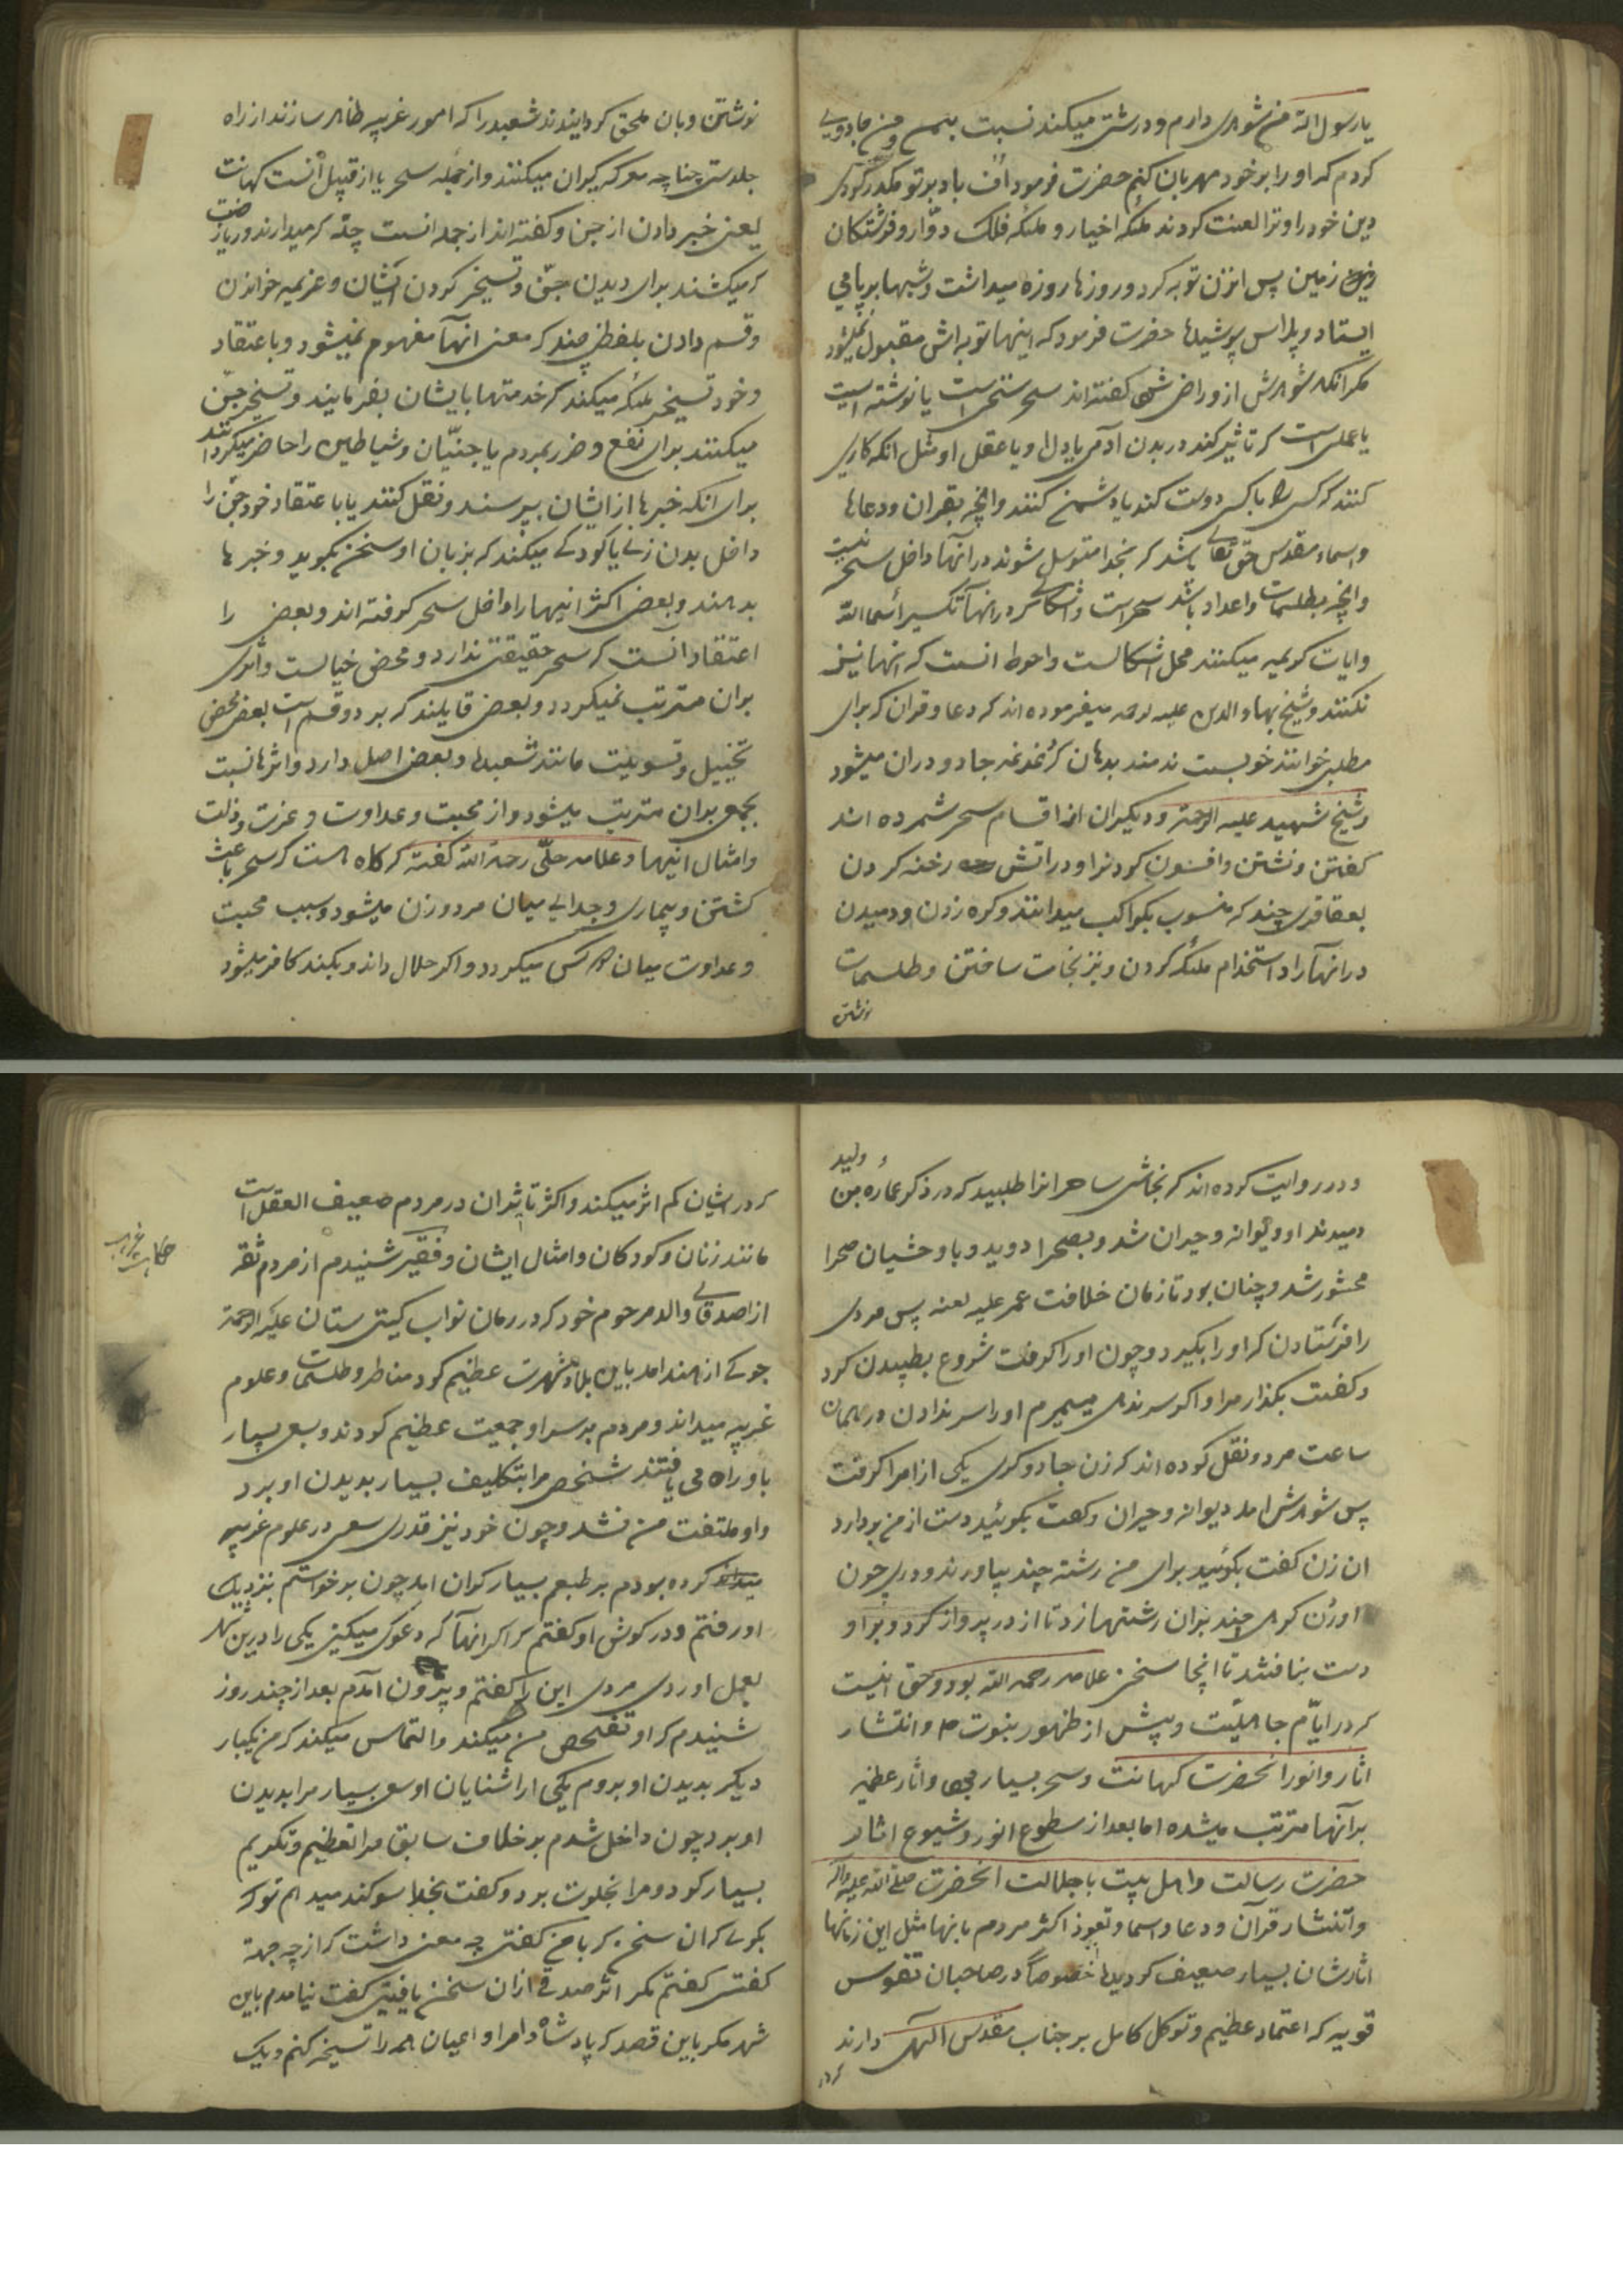 یارسول الله من شوهری دارم و درشتی میکند نسبت بمن و من جادویی
کردم که او را بر خود مهربان کنم حضرت فرمود اف باد بر تو مکدر کردی
دین خود را و ترا لعنت کردند ملئکه اخیار و ملئکه فلک دوّار و فرشتکان
روی زمین پس انزن توبه کرد و روزها روزه میداشت و شبها بر پا می
ایستاد و پلاس پوشیدها حضرت فرمود که اینها توبه اش مقبول نمیشود
مکر انکه شوهرش از و راضی شود کفته اند سحر سخنی است یا نوشته ایست
یا عملی است که تاثیر کند در بدن آدمی یا دل او یا عقل او مثل انکه کاری
کنند که کسی را با کسی دوست کند یا دشمنی کنند و انچه بقران و دعاها
و اسماء مقدس حق تعالی باشد که بخدا متوسل شوند در انها داخل سحر نیست
و انچه بطلسمات و اعداد باشد سحر است و اشکالی که در انها تکسیر اسماء الله
و ایات کریمه میکنند محل اشکالست و احوط انست که انها نیز
نکنند و شیخ بهاء الدین علیه الرحمه میفرموده اند که دعا و قران که برای
مطلبی خوانند خوبست ندمند بدهان که غدغدغه جادو در ان میشود
و شیخ شهید علیه الرحمة و دیکران از اقسام سحر شمرده اند
کفتن و نشتن و افسون کردنرا و در اتش رخنه کردن
بعقاقری چند که منسوب بکواکب میدانند و کره زدن و دمیدن
در انها را و استخدام ملئکه کردن و نیز نجات ساختن و طلسمات
نوشتن
نوشتن و بان ملحق کردانیدند شعبده را که امور غریبه ظاهر سازند از راه
جلدستی چناچه معرکه کیران میکنند و از جمله سحر یا از قبیل آنست کهانت
یعنی خبر دادن از جن و کفته اند از جمله انست چلّه که میدارند و ریاضت
که میکشند برای دیدن جنّ و تسخیر کردن ایشان و عزیمه خواندن
و قسم دادن بلفظی چند که معنی انها مفهوم نمیشود و باعتقاد
و خود تسخیر ملئکه میکند که خدمتها بایشان بفرمایند و تسخیر جنّ
میکنند برای نفع و ضرر بمردم یا جنیّان و شیاطین را حاضر میکردانند
برای انکه خبرها از ایشان بپرسند و نقل کنند یا باعتقاد خود جنّ را
داخل بدن زنی یا کودکی میکند که بزبان او سخن بکوید و خبرها
بدهند و بعضی اکثر اینها را داخل سحر کرفته اند و بعضی را
اعتقاد آنست که سحر حقیقتی ندارد و محض خیالست و اثری
بران مترتب نمیکردد و بعضی قایلند که بر دو قسم است بعضی محض
تخییل و تسویلیت مانند شعبدها و بعضی اصل دارد و اثرها نسبت
بجمعی بران مترتب میشود و از محبت و عداوت و عزت و ذلت
و امثال اینها و علامه حلّی رحمة الله کفته که کاه هست که سحر باعث
کشتن و بیماری و جدایی میان مرد و زن میشود و سبب محبت
و عداوت میان دو کس میکردد و اکر حلال داند و بکند کافر میشود
ولید
و در روایت کرده اند که نجاشی ساحرانرا طلبید که در ذکر عماره بن
دمیدند او دیوانه و حیران شد و بصحرا دوید و با وحشیان صحرا
محشور شد و چنان بود تا زمان خلافت عمر علیه لعنه پس مردی
را فرستادن که او را بکیرد و چون او را کرفت شروع بطپیدن کرد
و کفت بکذار مرا و اکر سر ندهی میمیرم او را سر ندادن در همان
ساعت مرد و نقل کرده اند که زن جادوکری یکی از امرا کرفت
پس شوهرش امد دیوانه و حیران و کفت بکوئید دست از من بردارد
ان زن کفت بکوئید برای من رشته چند بیاورند و دری چون
اورن کرهی چند بران رشتها زد تا از در پرواز کرد و بر او
دست نیافتند تا اینجا سخن علامه رحمه الله بود و حق انیست
که در ایّام جاهلیّت و پیش از ظهور بنوت ص و انتشار
اثار و انور انحضرت کهانت و سحر بسیار می‌بوده و اثار عظیمه
برآنها مترتب میشده اما بعد از سطوع انور و شیوع اثار
حضرت رسالت و اهل بیت با جلالت انحضرت صلی الله علیه واله
و انتشار قرآن و دعا و اسما و تعویذ اکثر مردم بانها مثل این زمانها
اثارشان بسیار ضعیف کردیده خصوصاً در صاحبان نقوس
قویه که اعتماد عظیم و توکل کامل بر جناب مقدس الهی دارند
که در
که در ایشان کم اثر میکند و اکثر تاثیران در مردم ضعیف العقل است
مانند زنان و کودکان و امثال ایشان و فقیر شنیدم از مردم ثقه
حکایت غریب
از اصدقای والد مرحوم خود که در زمان نواب کیتی ستان علیه الرحمة
جوکی از هند امد باین بلاد و شهرت عظیم کرد مناظر و طلسمات و علوم
غریبه میداند و مردم بر سر او جمعیت عظیم کردند و بسعی بسیار
باو راه می یافتند شخصی مرا بتکلیف بسیار بدیدن او برد
و او ملتفت من نشد و چون خود نیز قدری سعی در علوم غریبه
کرده بودم بر طبعم بسیار کران امد چون برخواستم بنزدیک
او رفتم و در کوش او کفتم که اکر انها که دعوی میکنی یکی را درین شهر
بعمل اوردی مردی این را کفتم و بیرون آمدم بعد از چند روز
شنیدم که او تفحص من میکند و التماس میکند که من یکبار
دیکر بدیدن او بروم یکی از اشنایان او بسعی بسیار مرا بدیدن
او برد چون داخل شدم بر خلاف سابق مرا تعظیم و تکریم
بسیار کرد و مرا بخلوت برد و کفت بخدا سوکند میدهم تو که
بکوی که ان سخن که با من کفتی چه معنی داشت که از چه جهة
کفتی کفتم مکر اثر صدقی از ان سخن یافتی کفت نیامدم باین
شهر مکر باین قصد که پادشاه و امرا و اعیان همه را تسخیر کنم و یک